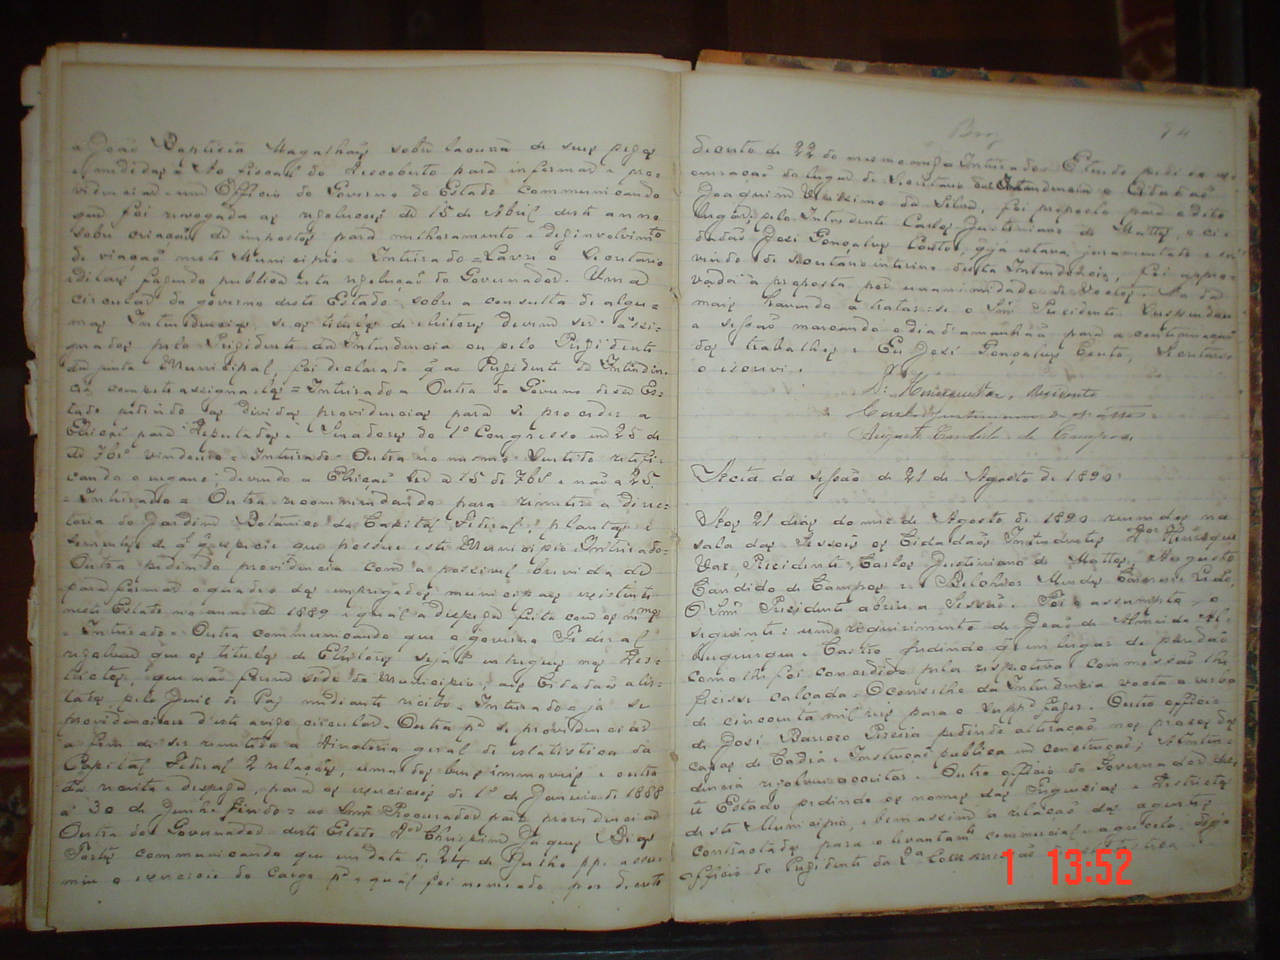 a João Baptista Magalhães sobre
medidas = Ao Fiscal do para informar e pro=
videnciar = um Officio do Governo do Estado Communicando
que foi revogada as resoluções de 15 de Abril deste anno
sobre criação de impostos para milhoramento e desinvolvimto
de viação neste Municipio = Inteirado = Lavre o Secretario
edital fazendo publica esta resolução do Governador. Uma
circular do governo deste Estado sobre a consulta de algu=
mas Intendencias, se os titulos de eleitores devem ser assi=
gnados pelo Prezidente da Intendencia ou pelo Prezidente
da junta Municipal, foi declarado q ao Prezidente da Intenden
cia compete assignal-os = Inteirado = Outra do Governo deste Es=
tado pidindo as dividas providencias para se proceder a
Eleição para Deputados e Senadores do 1º Congresso em 25 de
de 7bro vindouro = Inteirado = Outra no mesmo sentido retifi=
cando o engano, devendo a Eleição ser a 15 de 7bro e não a 25
= Inteirado = Outra recommendando para remetter a direc=
toria do Jardim Botanico da Capital Federal, plantas e
sementes de q.q. especie que possue este Municipio. Inteirado=
Outra pedindo providencia com a possivel brevidade
para formar o quadro dos empregados municipaes existente
neste Estado no anno de 1889 e qual a despeza feita com os mmos
= Inteirado = Outra communicando que o governo Federal
resolveu que os titulos de Eleitores sejão entregues nos Des=
trictos, que não forem séde do Municipio, aos Cidadãos alis=
tados pelo Juiz de Paz mediante recibo = Inteirado = já se
providenciou deste avizo circular = Outra pª se providenciar
a fim de ser remettida a Directoria geral de estatistica da
Capital Federal 2 relações, uma dos bens immoveis e outra
da receita e despeza, para os exercicios de 1º de Janeiro de 1888
a 30 de Junho findo = ao Snr Procurador para providenciar
Outra do Governador deste Estado
Fortes communicando que em data de 24 de Julho pp. assu
miu o exercicio do Cargo pª o qual foi nomeado por decreto
94
decreto de 22 do mesmo mez = Inteirado =
oneração do lugar de Secretario da Intendencia o Cidadão
Joaquim Verissimo da Silva, foi proposto para o dito
lugar, pelo Intendente Carlos Justiniano de Mattos, o ci=
dadão José Gonçalves Couto, q já estava juramentado e ser
vindo de Secretario interino desta Intendencia, foi appro=
vada a proposta por unanimidade de vottos. Nada
mais havendo a tratar-se o Snr Prezidente suspendeu
a sessão marcando o dia de amanhã para a continuação
dos trabalhos. Eu José Gonçalves Couto, Secretario
o escrevi.
Carlos Justiniano de Mattos
Augusto Candido de Campos
Acta da sessão de 21 de Agosto de 1890
Aos 21 dias do mez de Agosto de 1890 reunidos na
sala das Sessões os Cidadãos Intendentes
Vaz, Prezidente, Carlos Justiniano de Mattos, Augusto
Candido de Campos e
O Snr Prezidente abrio a Sessão. Foi o assumpto o
seguinte: um requerimento de João de Almeida Al
buquerque e Castro pedindo q um lugar de
como lhe foi concedido pela respectiva commissão lhe
fosse calçada: O conselho da Intendencia vota a verba
de cincoenta mil reis para o suppe fazer. Outro officio
de José Barrozo Pereira pedindo alteração nos prazos das
cazas de Cadêa e Instrucção publica em construcção; A Inten=
dencia resolveu acceitar. Outro officio do Governador des
te Estado pedindo os nomes das Freguezias e Destrictos
deste Municipio, e bem assim a relação dos
contractados para o levantamto commercial e agricola.
officio do Prezidente da 2ª
1 13:52